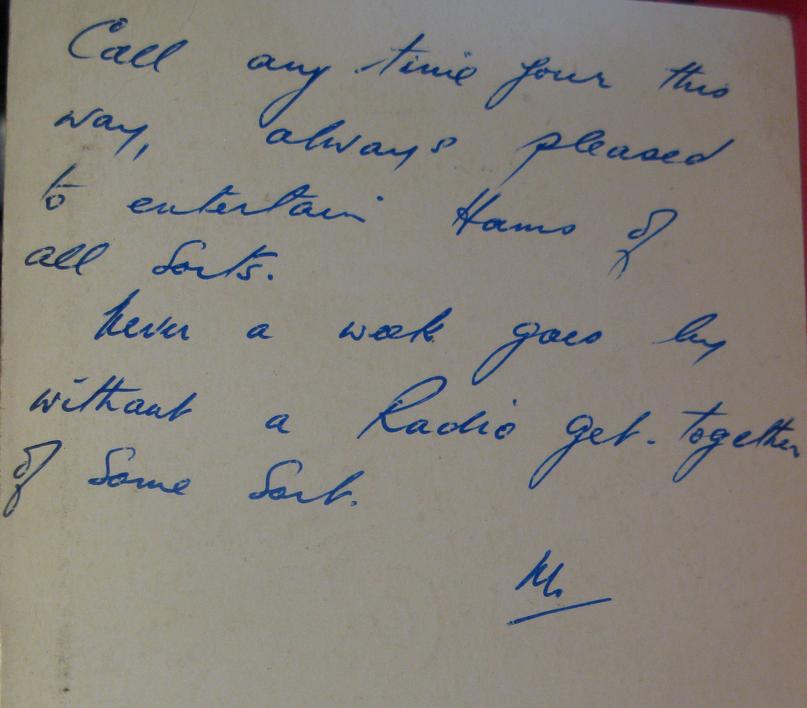 Call any time your this
way, always pleased
to entertain Hams of
all Sorts.
Never a week goes by
without a Radio get-together
of Some Sort.
M.